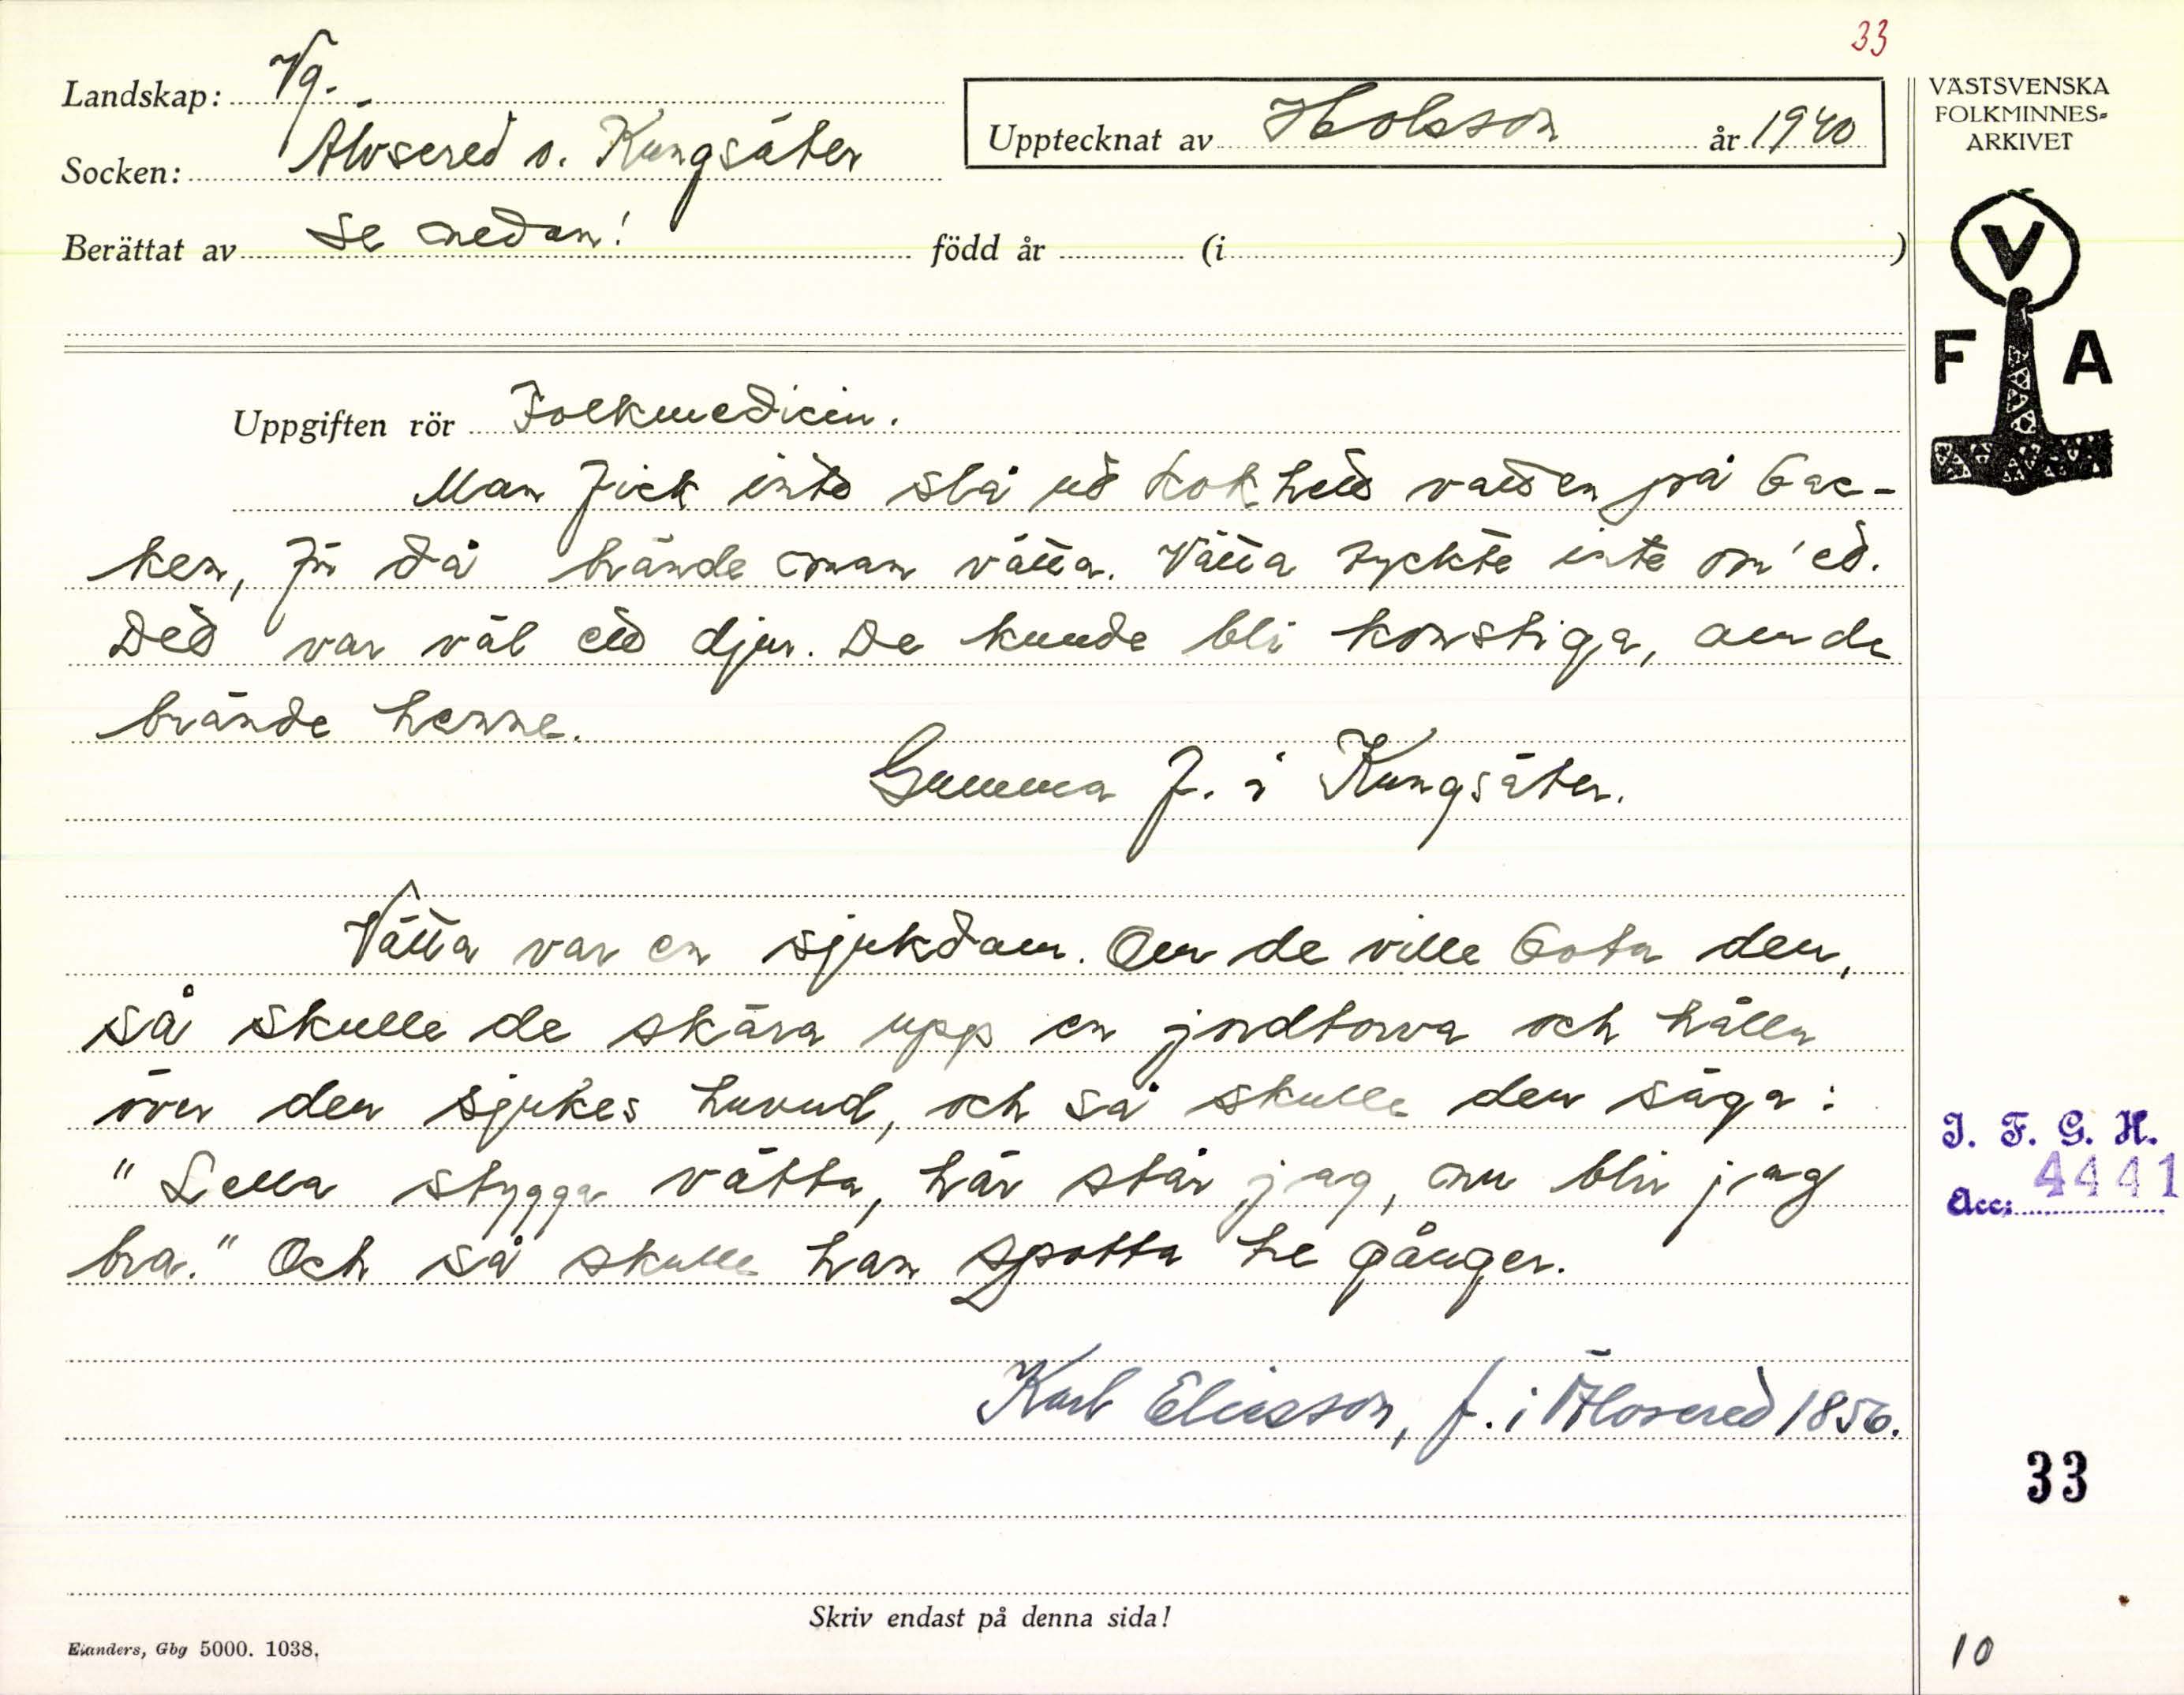 33
Landskap: Vg.
Socken: Älvsered o. Kungsäter
Upptecknat av Holsson år 1940
Berättat av se nedan! född år (i )
VÄSTSVENSKA
FOLKMINNES-
ARKIVET
V
F A
Uppgiften rör Folkmedicin.
Man fick inte slå ud kokhed vatten på bac-
ken, för då brände man vätta. Vätta tyckte inte om'ed.
Ded var väl ed djur. De kunde bli konstiga, om de
brände henne.
Gumma f. i Kungsäter.
Vätta var en sjukdom. Om de ville bota den,
så skulle de skära upp en jordtorva och hålla
över den sjukes huvud, och så skulle den säga:
"Lella stygga vätta, här står jag, nu blir jag
bra." Och så skulle han spotta tre gånger.
Karl Eliasson, f. i Älvsered 1856.
I. F. G. H.
Acc: 4441
33
Skriv endast på denna sida!
Elanders, Gbg 5000. 1038.
10